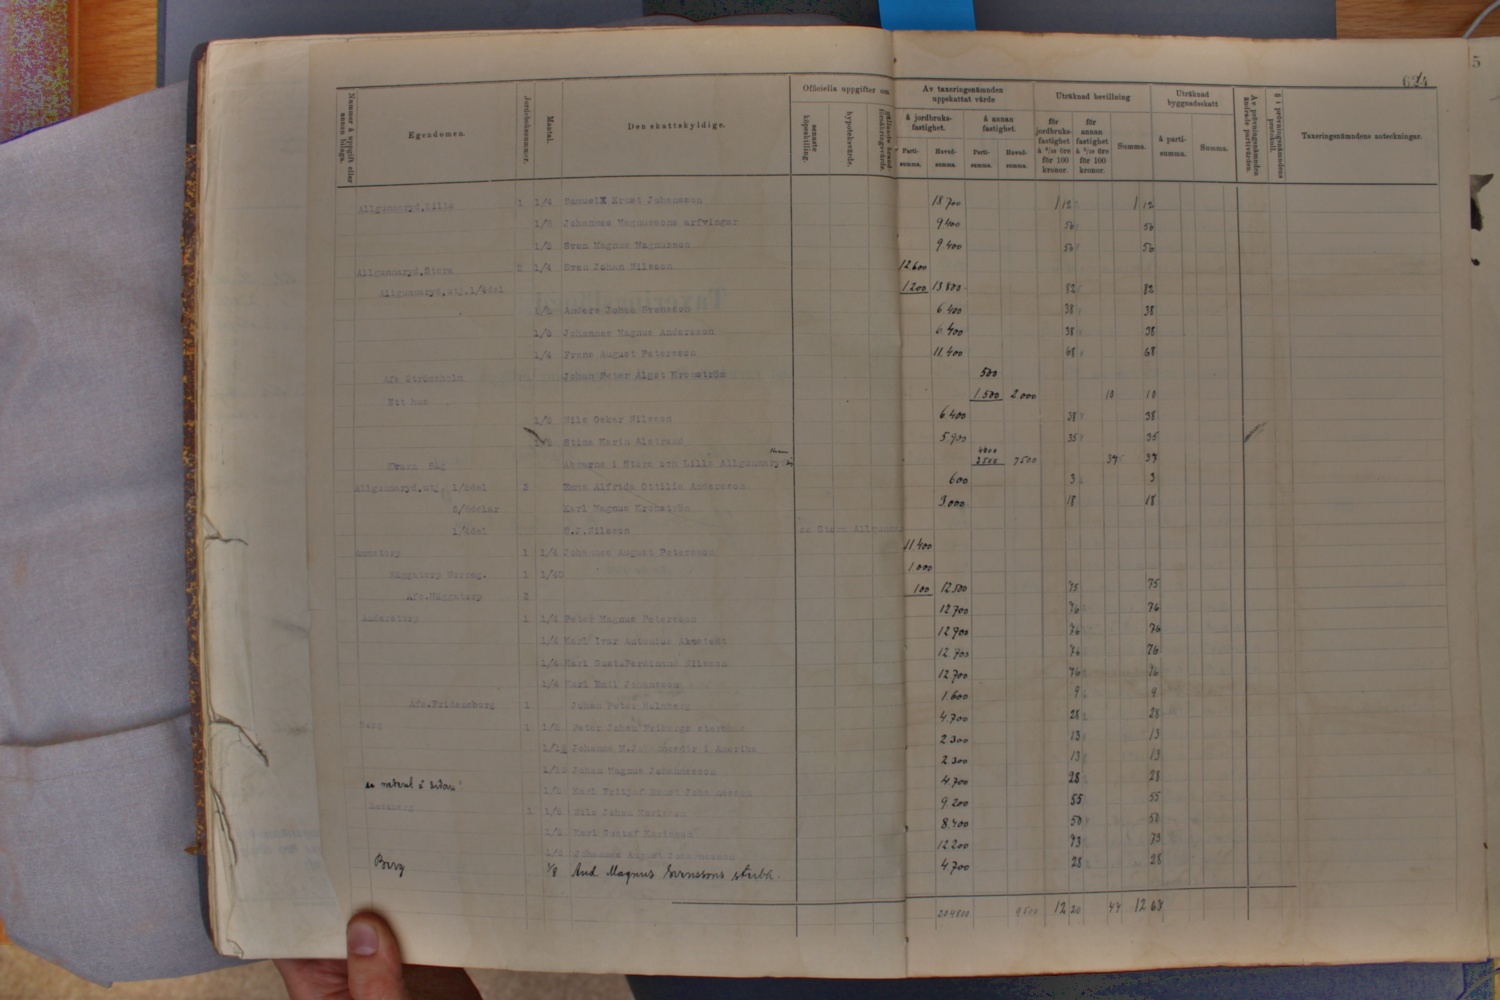 624
5
Nummer å uppgift eller annan bilaga.
Egendomen.
Jordeboksnummer.
Mantal.
Den skattskyldige.
Officiella uppgifter om
senaste köpeskilling.
hypoteksvärde.
gällande brandförsäkringsvärde.
Av taxeringsnämnden uppskattat värde
å jordbruksfastighet.
å annan fastighet.
Parti-summa.
Huvud-summa.
Parti-summa.
Huvud-summa.
Uträknad bevillning
för jordbruksfastighet å 6/10 öre för 100 kronor.
för annan fastighet å 5/10 öre för 100 kronor.
Summa.
Uträknad byggnadsskatt
å parti-summa.
Summa.
Av prövningsnämnden ändrade partivärden.
§ i prövningsnämndens protokoll.
Taxeringsnämndens anteckningar.
Allgunnaryd, Lilla 1 1/4 Samuel Ernst Johansson 18 700 1 12 1 12
1/8 Johannes Magnussons arfwingar 9.400 56 56
1/8 Sven Magnus Magnusson 9.400 56 56
Allgunnaryd, Stora 2 1/4 Sven Johan Nilsson 12.600
Allgunnaryd, utj. 1/4del 1.200 13 800 82 82
1/8 Anders Johan Svensson 6.400 38 38
1/8 Johannes Magnus Andersson 6.400 38 38
1/4 Frans August Petersson 11.400 68 68
Afs Strömsholm Johan Peter Algot Kronström 500
Ett hus 1 500 2 000 10 10
1/8 Nils Oskar Nilsson 6 400 38 38
1/8 Stina Karin Alstrand 5.900 35 35
Kvarn Såg Åboerne i Stora och Lilla Allgunnaryd 7500
Allgunnaryd, utj. 1/8del 3 Emma Alfrida Ottilia Andersson 600 3 3
5/8delar Karl Magnus Kronström 3 000 18 18
1/4del S.J. Nilsson se Stora Allgunnaryd
1 1/4 Johannes August Petersson 11.400
Häggatorp 1 1/4 1 000
Afs. Häggatorp 2 100 12.500 75 75
Anderstorp 1 1/4 Peter Magnus Petersson 12.700 76 76
1/4 Karl Ivar Antonius Almstedt 12 700 76 76
1/4 Karl Gust. Ferdinand Nilsson 12.700 76 76
1/4 Karl Emil Johansson 12.700 76 76
Afs. Fridensborg 1 Johan Peter Malmberg 1.600 9 9
Berg 1 1/8 Peter Johan Fribergs sterbhus 4.700 28 28
1/16 Johanna N. Johannesdtr i Amerika 2.300 13 13
1/16 Johan Magnus Johannesson 2.300 13 13
1/8 Karl Fritjof Ernst Johannesson 4.700 28 28
1 1/8 Nils Johan Karlsson 9.200 55 55
1/8 Karl Gustaf Karlsson 8.400 50 50
1/4 Johannes August Johannesson 12 200 73 73
Berg 1/8 And Magnus Svenssons sterbh. 4.700 28 28
204800 9500 12 20 48 12 68